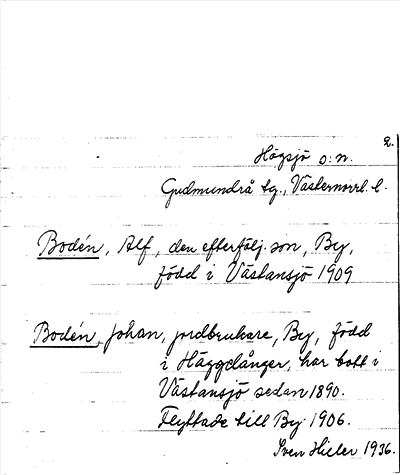 2.
Högsjö s:n.
Gudmundrå tg., Västernorrl. l.
Bodén, Alf, den efterfölj. son, By,
född i Västansjö 1909
Bodén, Johan, jordbrukare, By, född
i Häggdånger, har bott i
Västansjö sedan 1890.
Flyttade till By 1906.
Sven Hieler 1936.